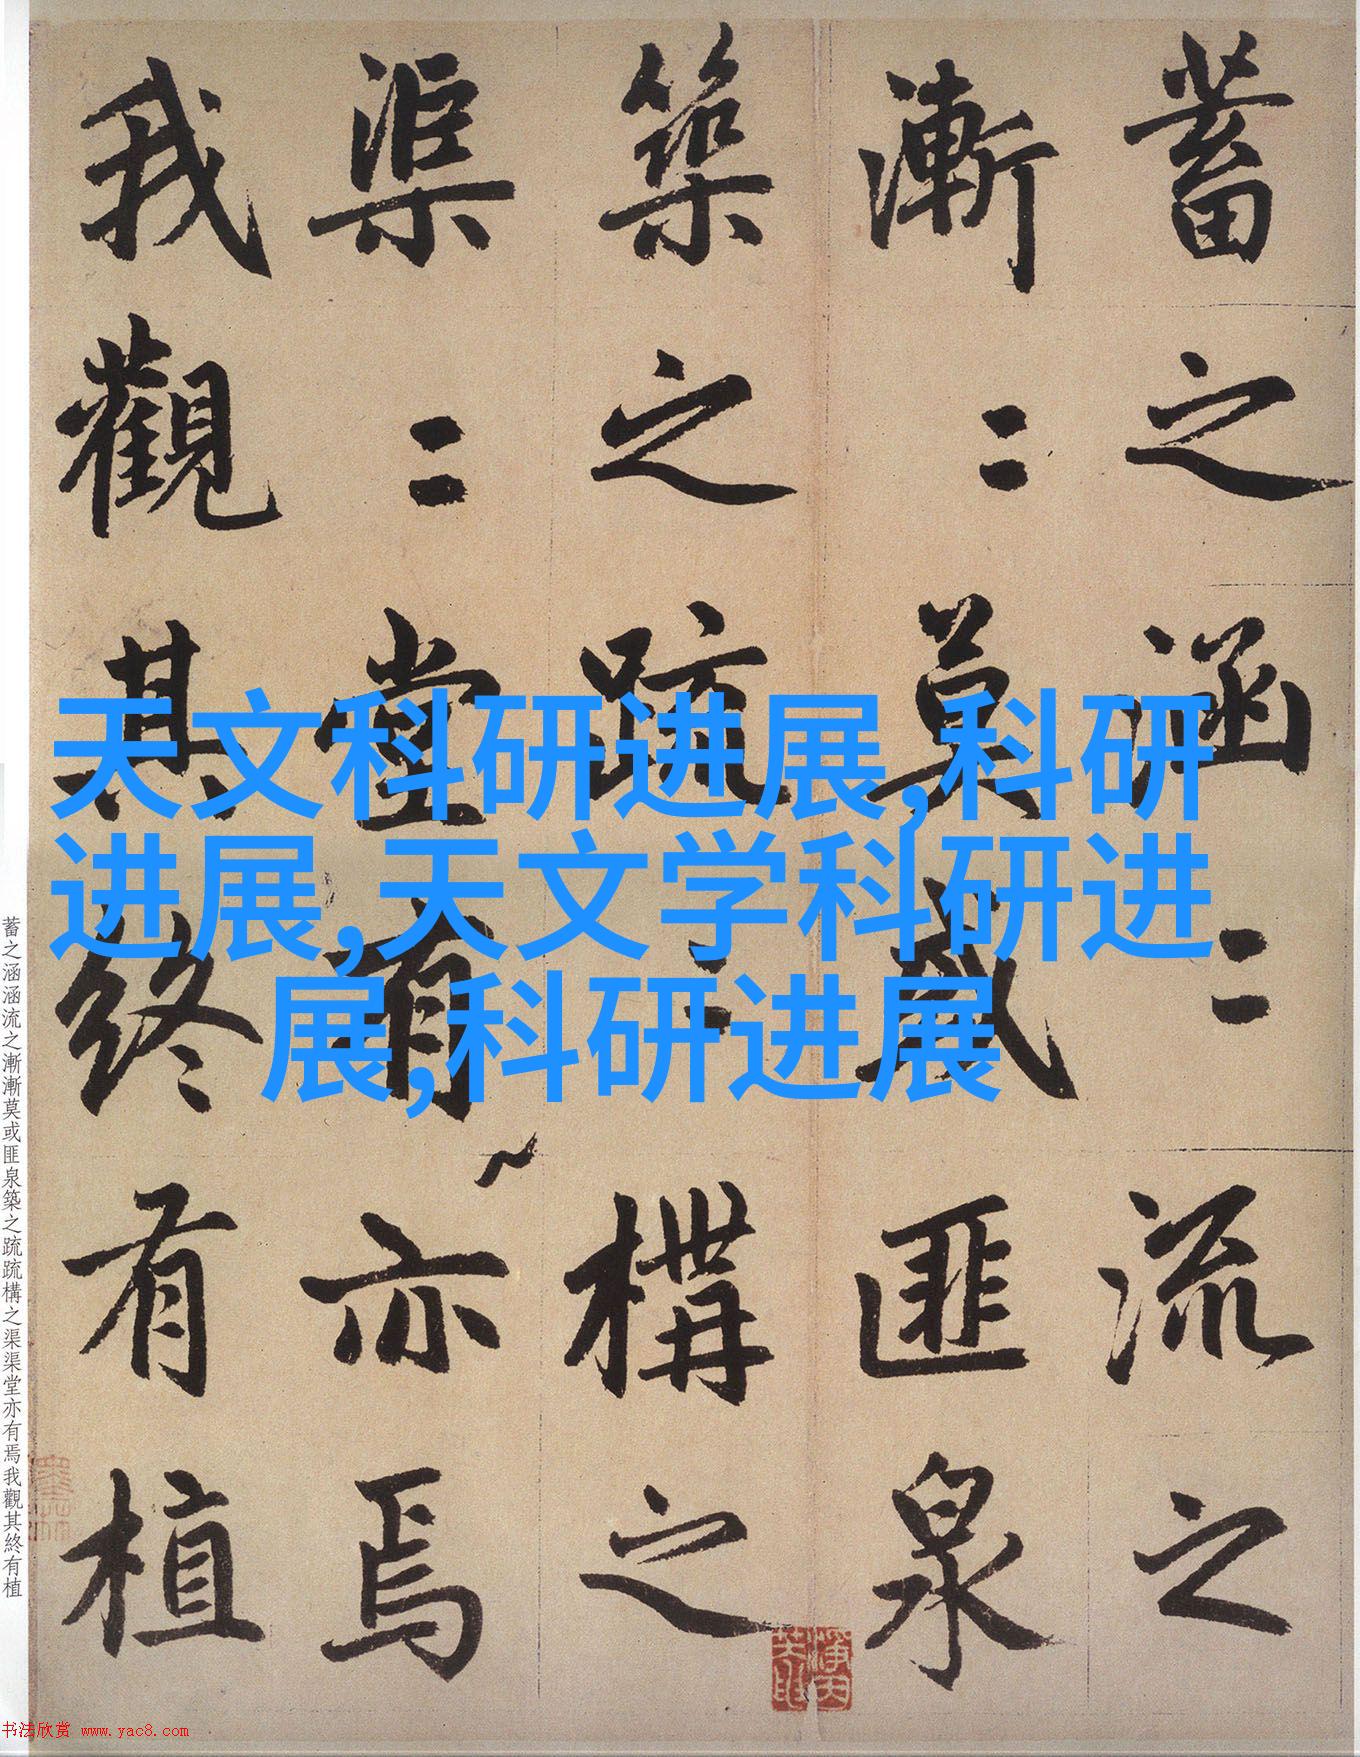 蓄之涵〻流之
漸〻莫或匪泉
築之疏〻構之
渠〻堂有亦焉
我觀其終有植
天文科研进展,科研
进展,天文学科研进
展,科研进展
蓄之涵涵流之漸漸莫或匪泉築之疏疏構之渠渠堂亦有焉我觀其終有植
书法欣赏 www.yac8.com